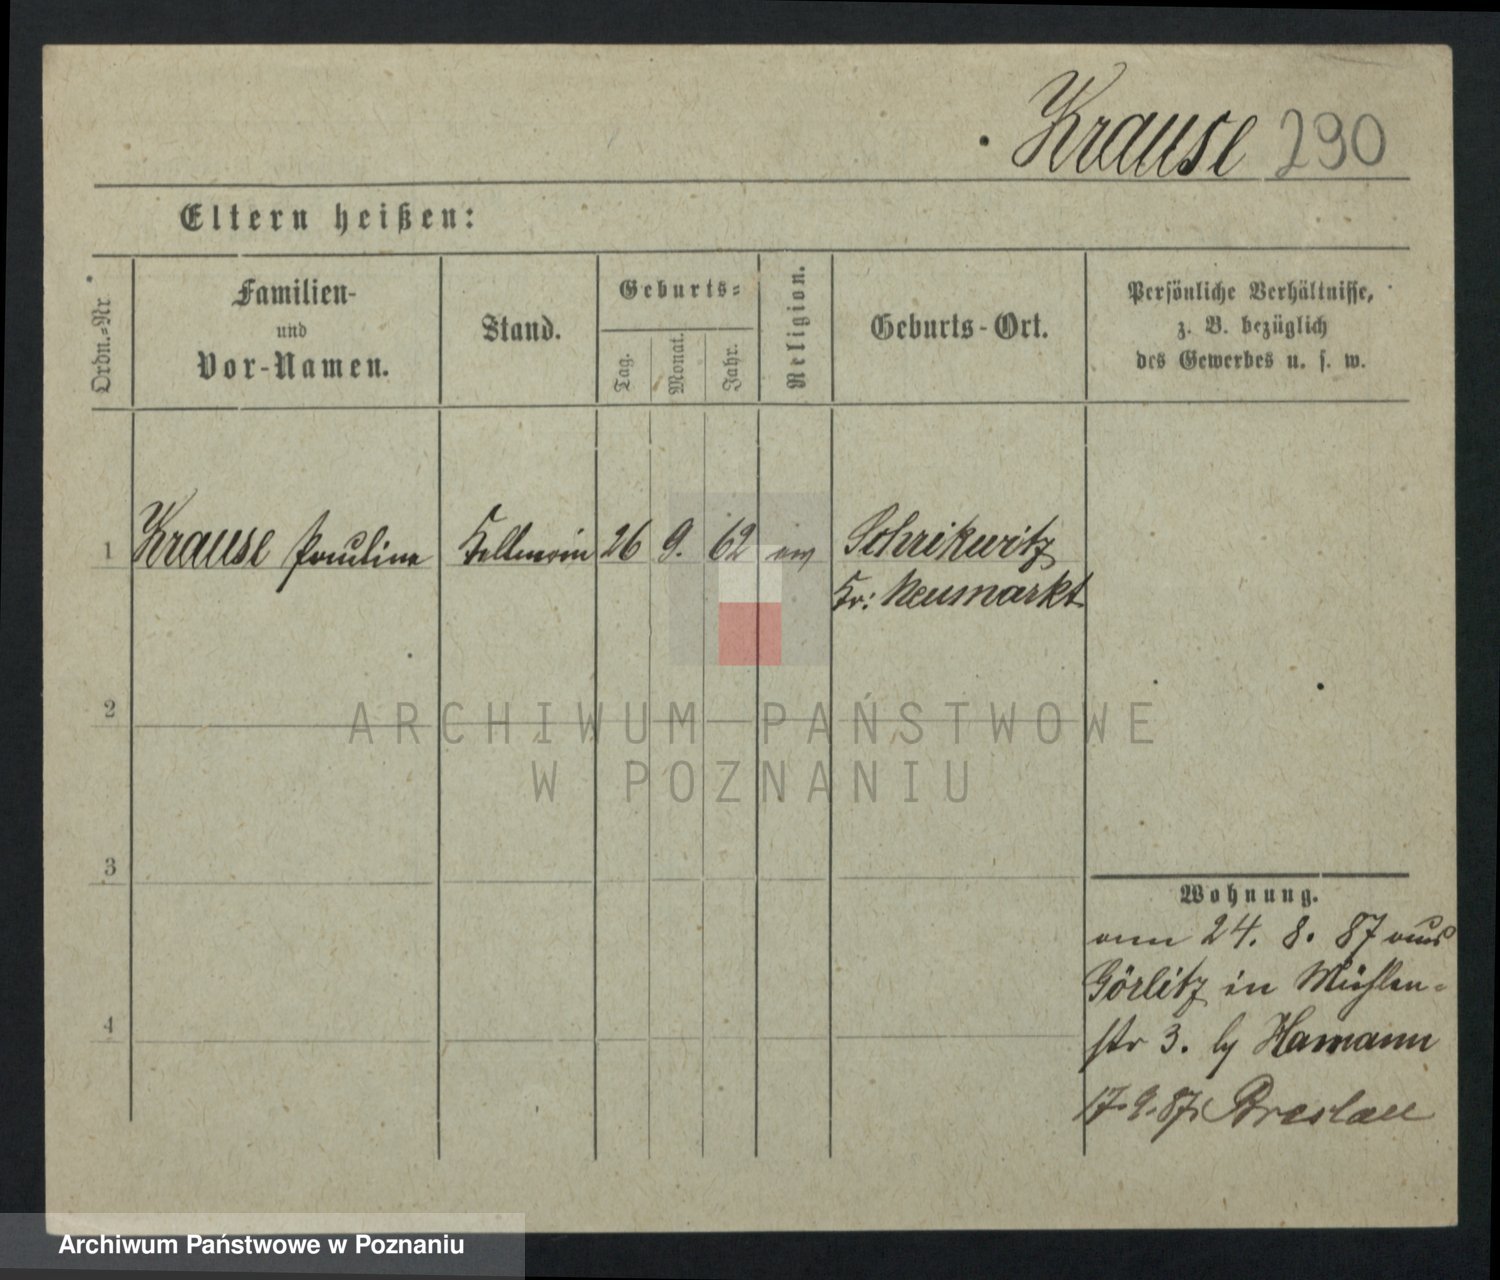 Krause 290
Eltern heißen:
Ordn.-Nr
Familien-
und
Vor-Namen.
Stand.
Geburts-
Tag.
Monat.
Jahr.
Religion.
Geburts-Ort.
Persönliche Verhältnisse,
z. B. bezüglich
des Gewerbes u. s. w.
1 Krause Pauline Kellnerin 26 9. 62 ev Schrikwitz
Kr: Neumarkt
2
ARCHIWUM PAŃSTWOWE
W POZNANIU
3
Wohnung.
am 24. 8. 87 aus
Görlitz in Mühlen-
str 3. Hamann
4
17.9.87. Breslau
Archiwum Państwowe w Poznaniu